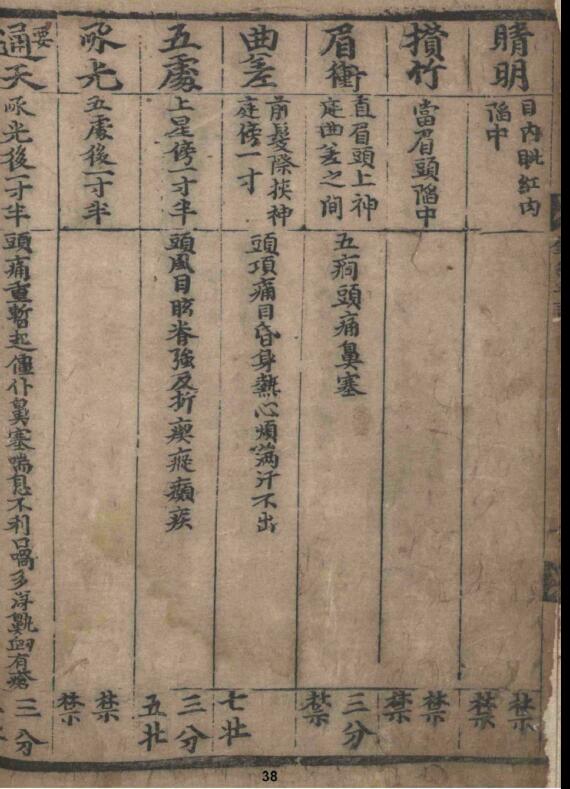 睛明
目内眦紅肉
陷中
禁
禁
攅竹
當眉頭陷中
禁
禁
眉衝
直眉頭上神
庭曲差之間
五癇頭痛鼻塞
三分
禁
曲差
前髮際挾神
庭傍一寸
頭項痛目昏身熱心煩滿汗不出
七壮
五處
上星傍一寸半
頭風目眩脊強反折瘈瘲癲疾
三分
五壮
承光
五處後一寸半
禁
禁
要
通天
承光後一寸半
頭痛重暫起僵仆鼻塞喘息不利口喎多涕鼽衂有瘡
三分
38